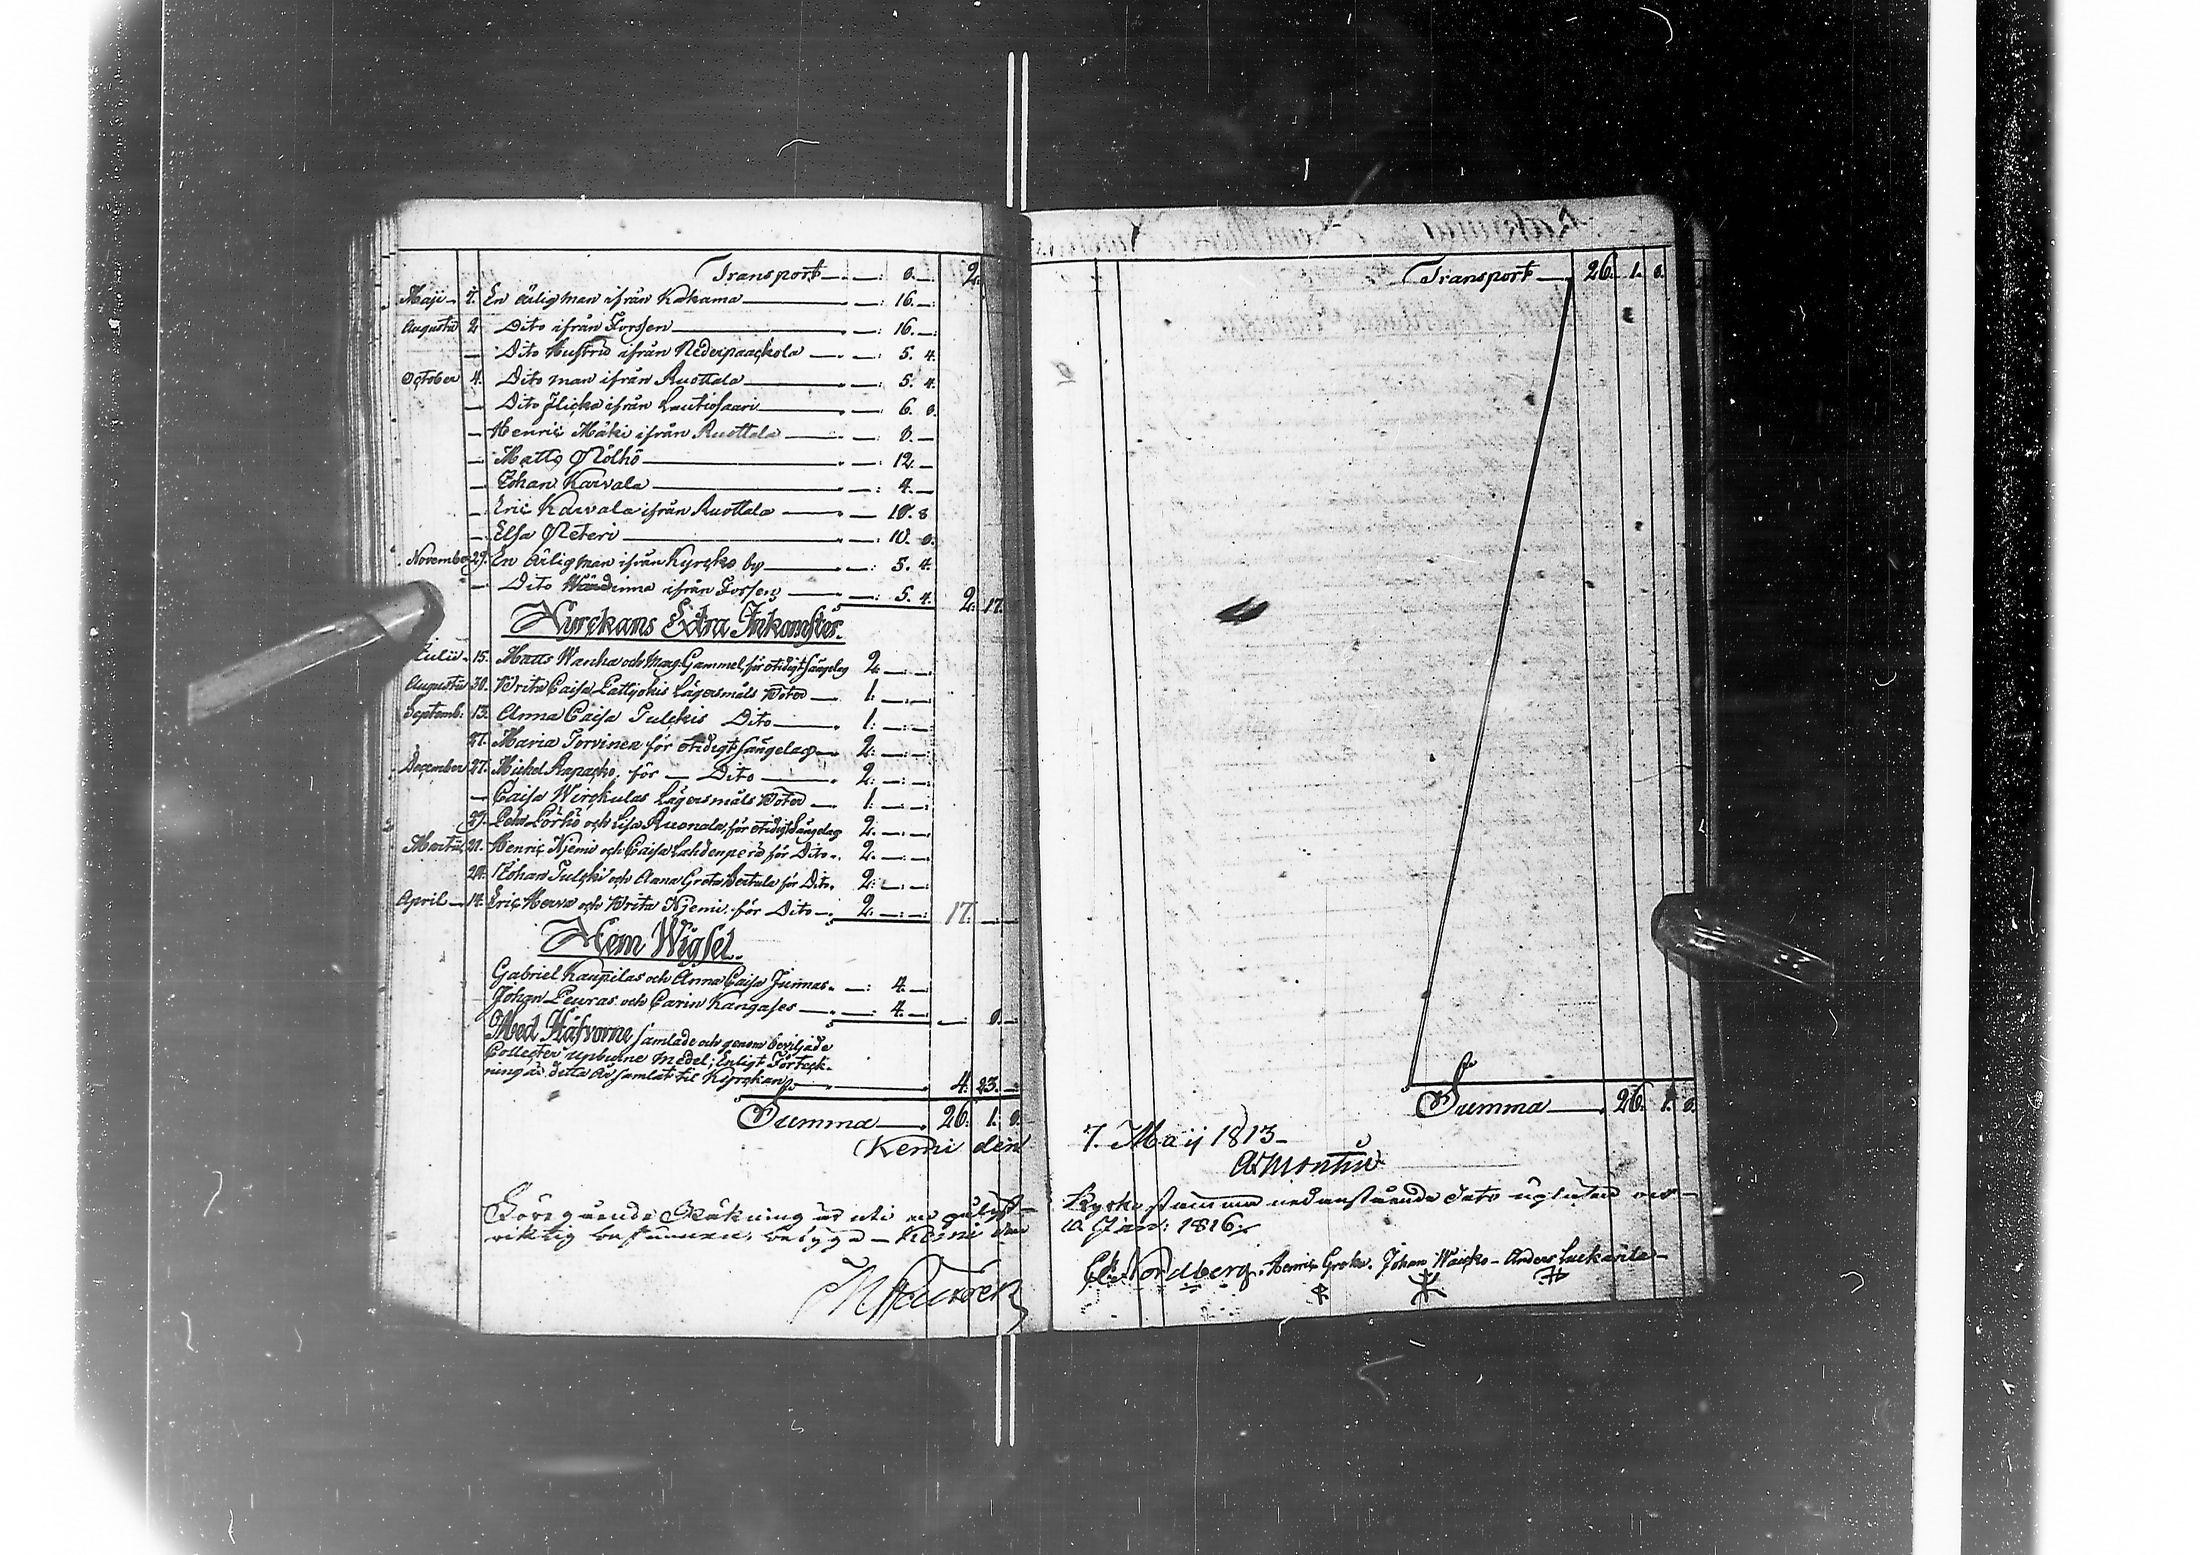 Transport — 8. — 2.
Maji — 7. En ärlig man ifrån Kakama — 16. —
Augusti 2. Dito ifrån Forssen — 16. —
— Dito Hustru ifrån Nederpaackola — 5. 4.
October 4. Dito man ifrån Ruottala — 5. 4.
— Dito flicka ifrån Lautiosaari — 6. 8.
— Henric Mäki ifrån Ruottala — 8. —
— Matts Pölhö — 12. —
— Johan Karvala — 4. —
— Eric Karvala ifrån Ruottala — 10. 8
— Elsa Peteri — 10. 8.
November 29. En ärlig man ifrån Kyrcko by — 5. 4.
— Dito Wärdinna ifrån Forssen — 5. 4. 2. 17.
Kyrckans Extra Inkomster.
Julii 15. Matts Wanha och Marg. Gammel, för otidigt sängelag 2. — —
Augusti 30. Brita Caisa Pattjokis Lägersmåls Böter — 1. — —
Septemb: 13. Anna Caisa Julckis Dito — 1. — —
27. Maria Torvinen för otidigt sängelag — 2. — —
December 27. Michel Rapacko, för — Dito — 2. — —
— Caisa Wirckulas Lägersmåls Böter — 1. — —
29. Pehr Pörhö och Lisa Ruonala, för otidigt sängelag 2. — —
Martii 21. Henric Njemi och Caisa Lahdenperä för Dito. 2. — —
24. Johan Julcki och Anna Greta Hertula för Dito. 2. — —
April — 14. Eric Herva och Brita Njemi, för Dito — 2. — — 17. — —
Hem Wigsel.
Gabriel Kaupilas och Anna Caisa Junnas. — 4. —
Johan Peuras och Carin Kangases — 4. — — 8. —
Med Håfvorne samlade och genom beviljade
Collecter upburne medel; Enligt Förteck-
ning är detta År samlat til Kyrckan — 4. 23. —
Summa — 26. 1. 8.
Kemi den
Föregående Räkning är uti
riktig befunnen, betyga — Kemi den
Transport — 26. 1. 8.
Summa — 26. 1. 8.
7. Maij 1813 —
Kyrko stämma nedanstående dato
10 Jan: 1816
Nordberg. Henric Groke. Johan Waicko — Anders Luckarila —